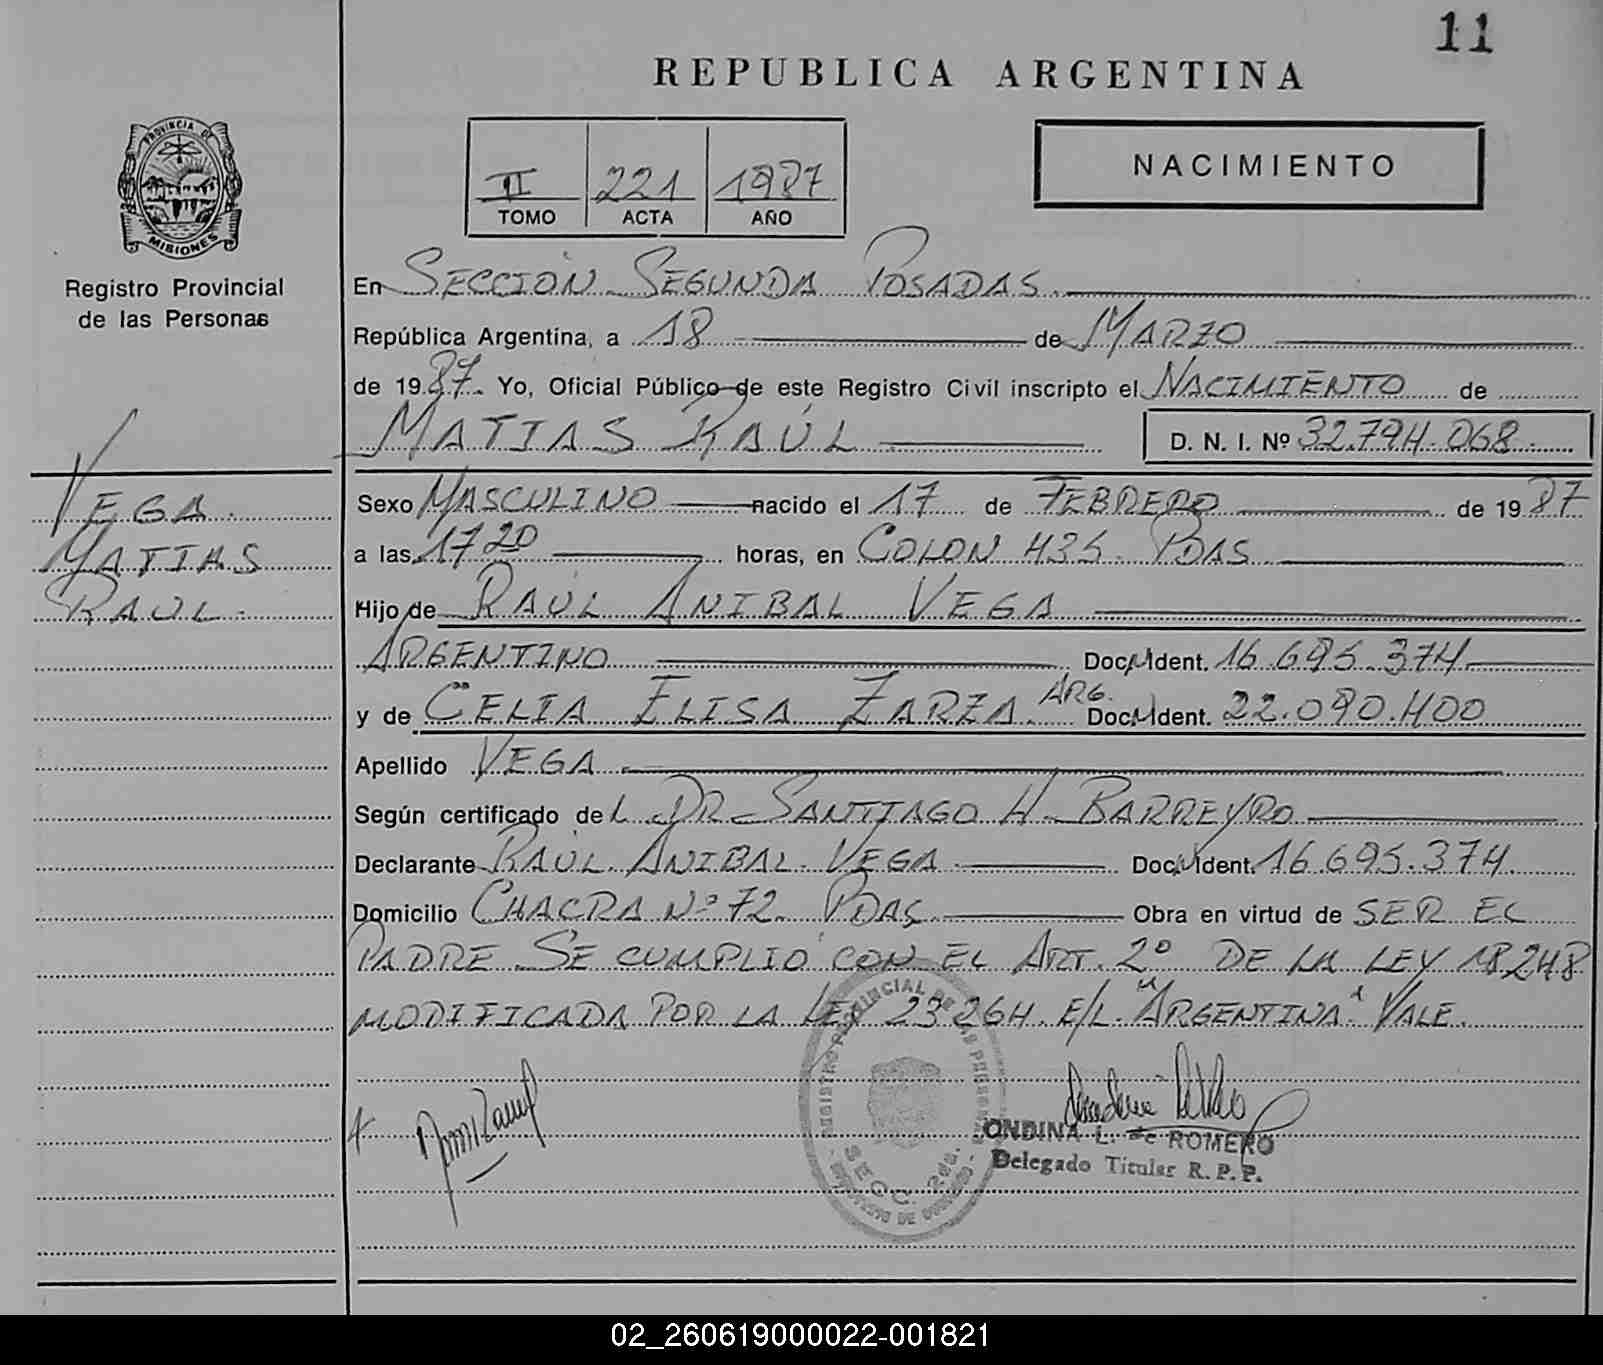 11
REPUBLICA ARGENTINA
PROVINCIA DE
MISIONES
Registro Provincial
de las Personas
II 221 1987
TOMO ACTA AÑO
NACIMIENTO
En SECCION SEGUNDA POSADAS.
República Argentina, a 18 de MARZO
de 1987. Yo, Oficial Público de este Registro Civil inscripto el NACIMIENTO de
MATIAS RAÚL D. N. I. Nº 32.794.068.
VEGA.
MATIAS
RAUL.
Sexo MASCULINO nacido el 17 de FEBRERO de 1987
a las 17 20 horas, en COLON 435. PDAS
Hijo de RAÚL ANIBAL VEGA
ARGENTINO Doc. Ident. 16.695.374
y de CELIA ELISA ZARZA. ARG. Doc. Ident. 22.090.400
Apellido VEGA
Según certificado del DR. SANTIAGO H. BARREYRO
Declarante RAÚL ANIBAL VEGA Doc. Ident. 16.695.374
Domicilio CHACRA Nº 72. PDAS. Obra en virtud de SER EL
PADRE SE CUMPLIÓ CON EL ART. 2º DE LA LEY 18248
MODIFICADA POR LA LEY 23264. E/L. "ARGENTINA". VALE.
REGISTRO PROVINCIAL DE LAS PERSONAS
SECC. 2da.
ONDINA L. de ROMERO
Delegado Titular R. P. P.
02_260619000022-001821